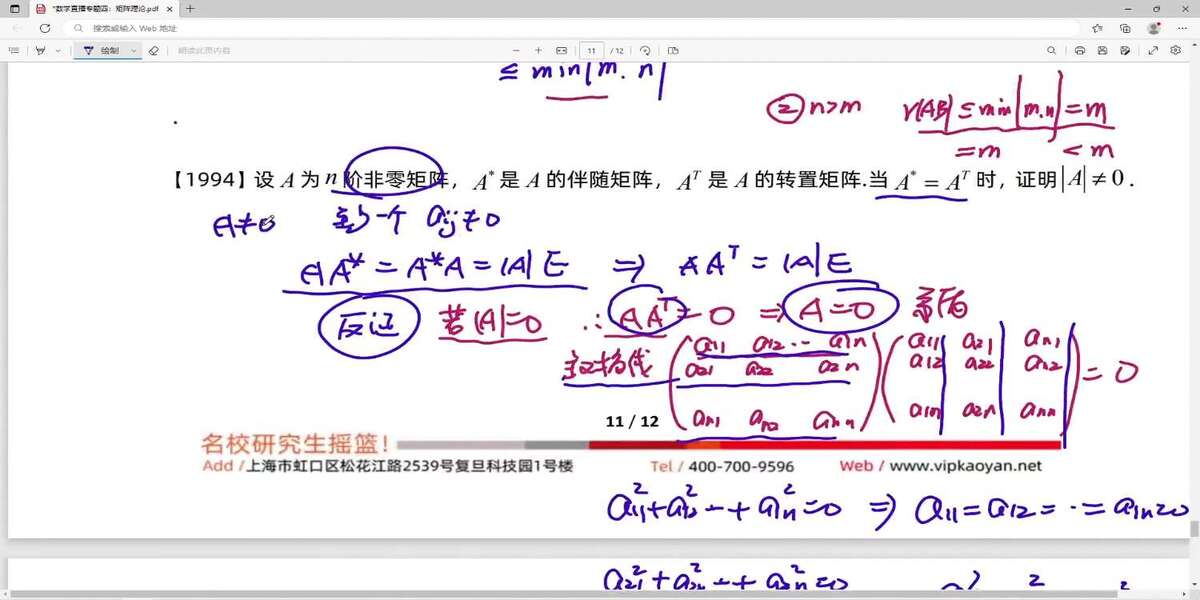 *数学直播专题四：矩阵理论.pdf
搜索或输入 Web 地址
绘制
朗读此页内容
11 / 12
≤ min{m, n}
② n>m r(AB) ≤ min{m, n} = m
= m < m
【1994】设 A 为 n 阶非零矩阵，A* 是 A 的伴随矩阵，A^T 是 A 的转置矩阵.当 A* = A^T 时，证明|A| ≠ 0 .
A≠0 至少一个 aij≠0
AA* = A*A = |A|E ⇒ AA^T = |A|E
反证 若|A|=0 ∴ AA^T = 0 ⇒ A=0 矛盾
主对角线
a11 a12 ⋯ a1n a11 a21 an1
a21 a22 a2n a12 a22 an2 = 0
an1 an2 ann a1n a2n ann
11 / 12
名校研究生摇篮！
Add / 上海市虹口区松花江路2539号复旦科技园1号楼 Tel / 400-700-9596 Web / www.vipkaoyan.net
a11² + a12² ⋯ + a1n² = 0 ⇒ a11 = a12 = ⋯ = a1n = 0
a21² + a22² ⋯ + a2n² = 0